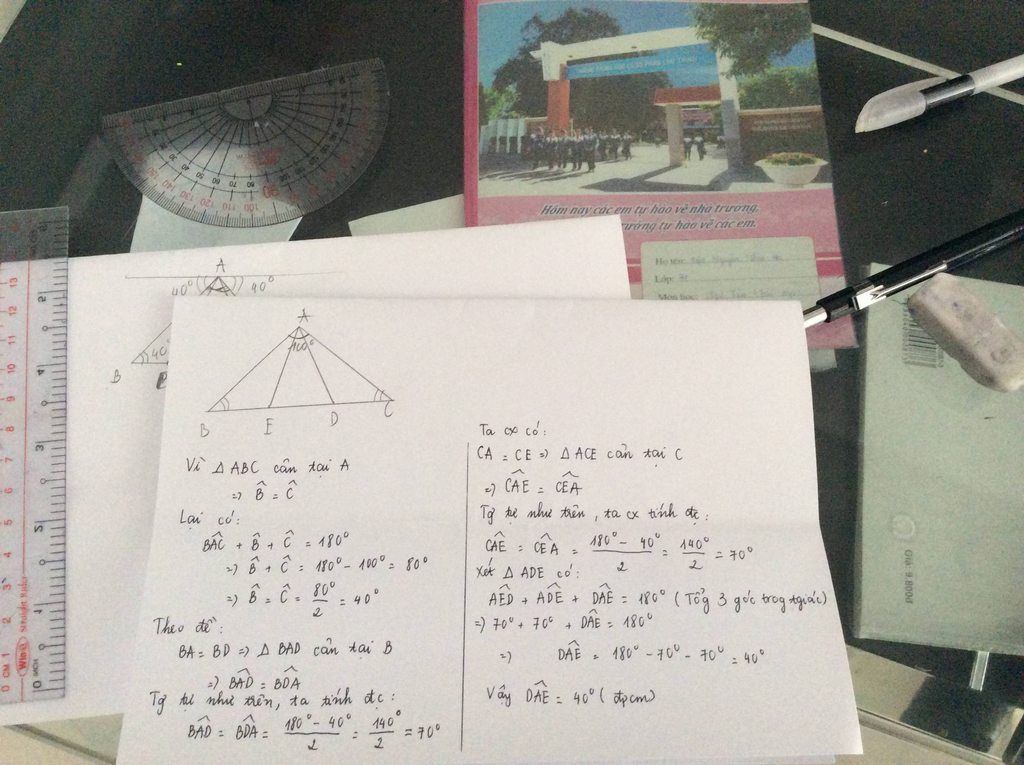 Hôm nay các em tự hào về nhà trường,
trường tự hào về các em.
Họ tên:
Lớp:
Môn học:
Giá: 9.800đ
A
40° 40°
40°
B
A
100°
B E D C
Vì △ ABC cân tại A
=) B̂ = Ĉ
Lại có:
BÂC + B̂ + Ĉ = 180°
=) B̂ + Ĉ = 180° - 100° = 80°
=) B̂ = Ĉ = 80°/2 = 40°
Theo đề:
BA = BD => △ BAD cân tại B
=) BÂD = BD̂A
Tg tự như trên, ta tính đc:
BÂD = BD̂A = (180° - 40°)/2 = 140°/2 = 70°
Ta cx có:
CA = CE => △ ACE cân tại C
=) CÂE = CÊA
Tg tự như trên, ta cx tính đc:
CÂE = CÊA = (180° - 40°)/2 = 140°/2 = 70°
Xét △ ADE có:
AÊD + AD̂E + DÂE = 180° (Tổg 3 góc trog tgiác)
=) 70° + 70° + DÂE = 180°
=) DÂE = 180° - 70° - 70° = 40°
Vậy DÂE = 40° (đpcm)